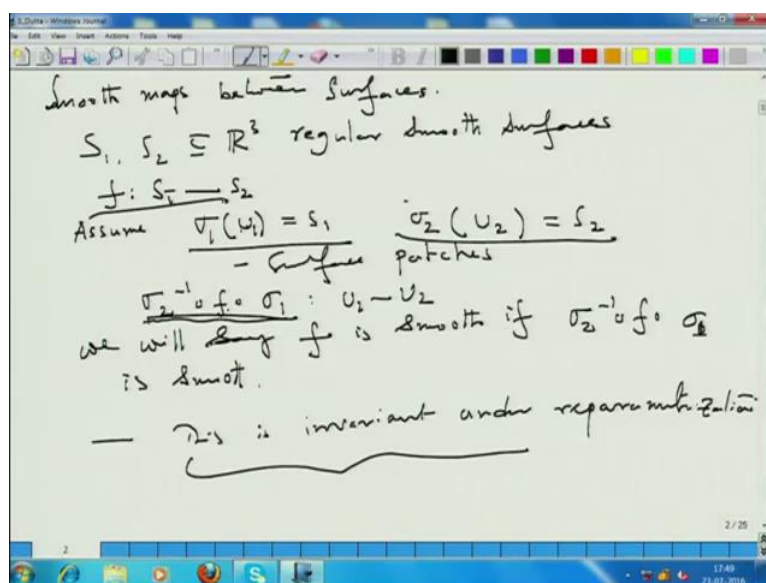 S_Dutta - Windows Journal
File Edit View Insert Actions Tools Help
Smooth maps between Surfaces.
S₁, S₂ ⊆ ℝ³ regular smooth surfaces
f: S₁ — S₂
Assume σ₁(U₁) = S₁ σ₂(U₂) = S₂
- Surface patches
σ₂⁻¹∘f∘σ₁ : U₁ — U₂
we will say f is smooth if σ₂⁻¹∘f∘σ₁
is smoot.
— This is invariant under reparametrization
2 / 25
2
17:49
23-07-2016